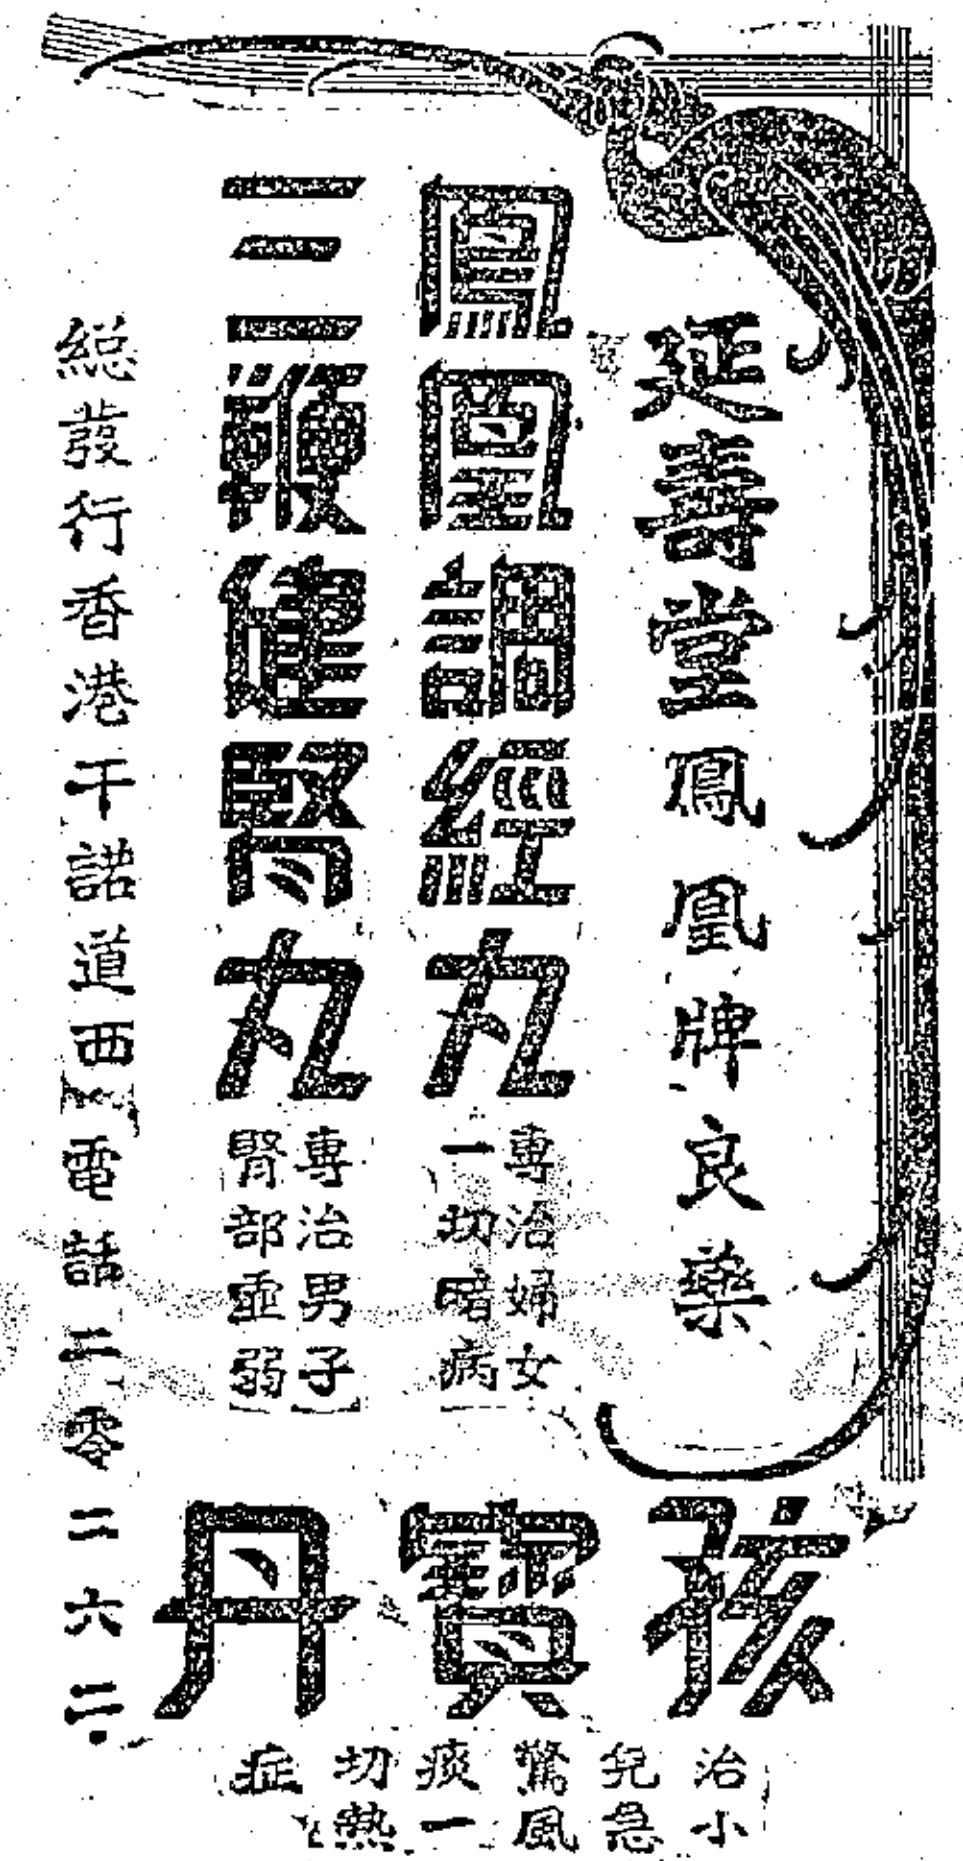 延壽堂鳳凰牌良藥
鳳凰調經丸
專治婦女
一切暗病
三鞭健腎丸
專治男子
腎部亜弱
孩寶丹
治小兒急驚風痰一切熱症
総發行香港干諾道西
電話二零二六二